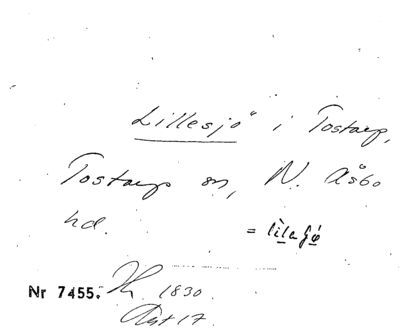 Lillesjö i Tostarp,
Tostarp sn, N. Åsbo
hd.
= lìla ʃø
Nr 7455. 1830
17